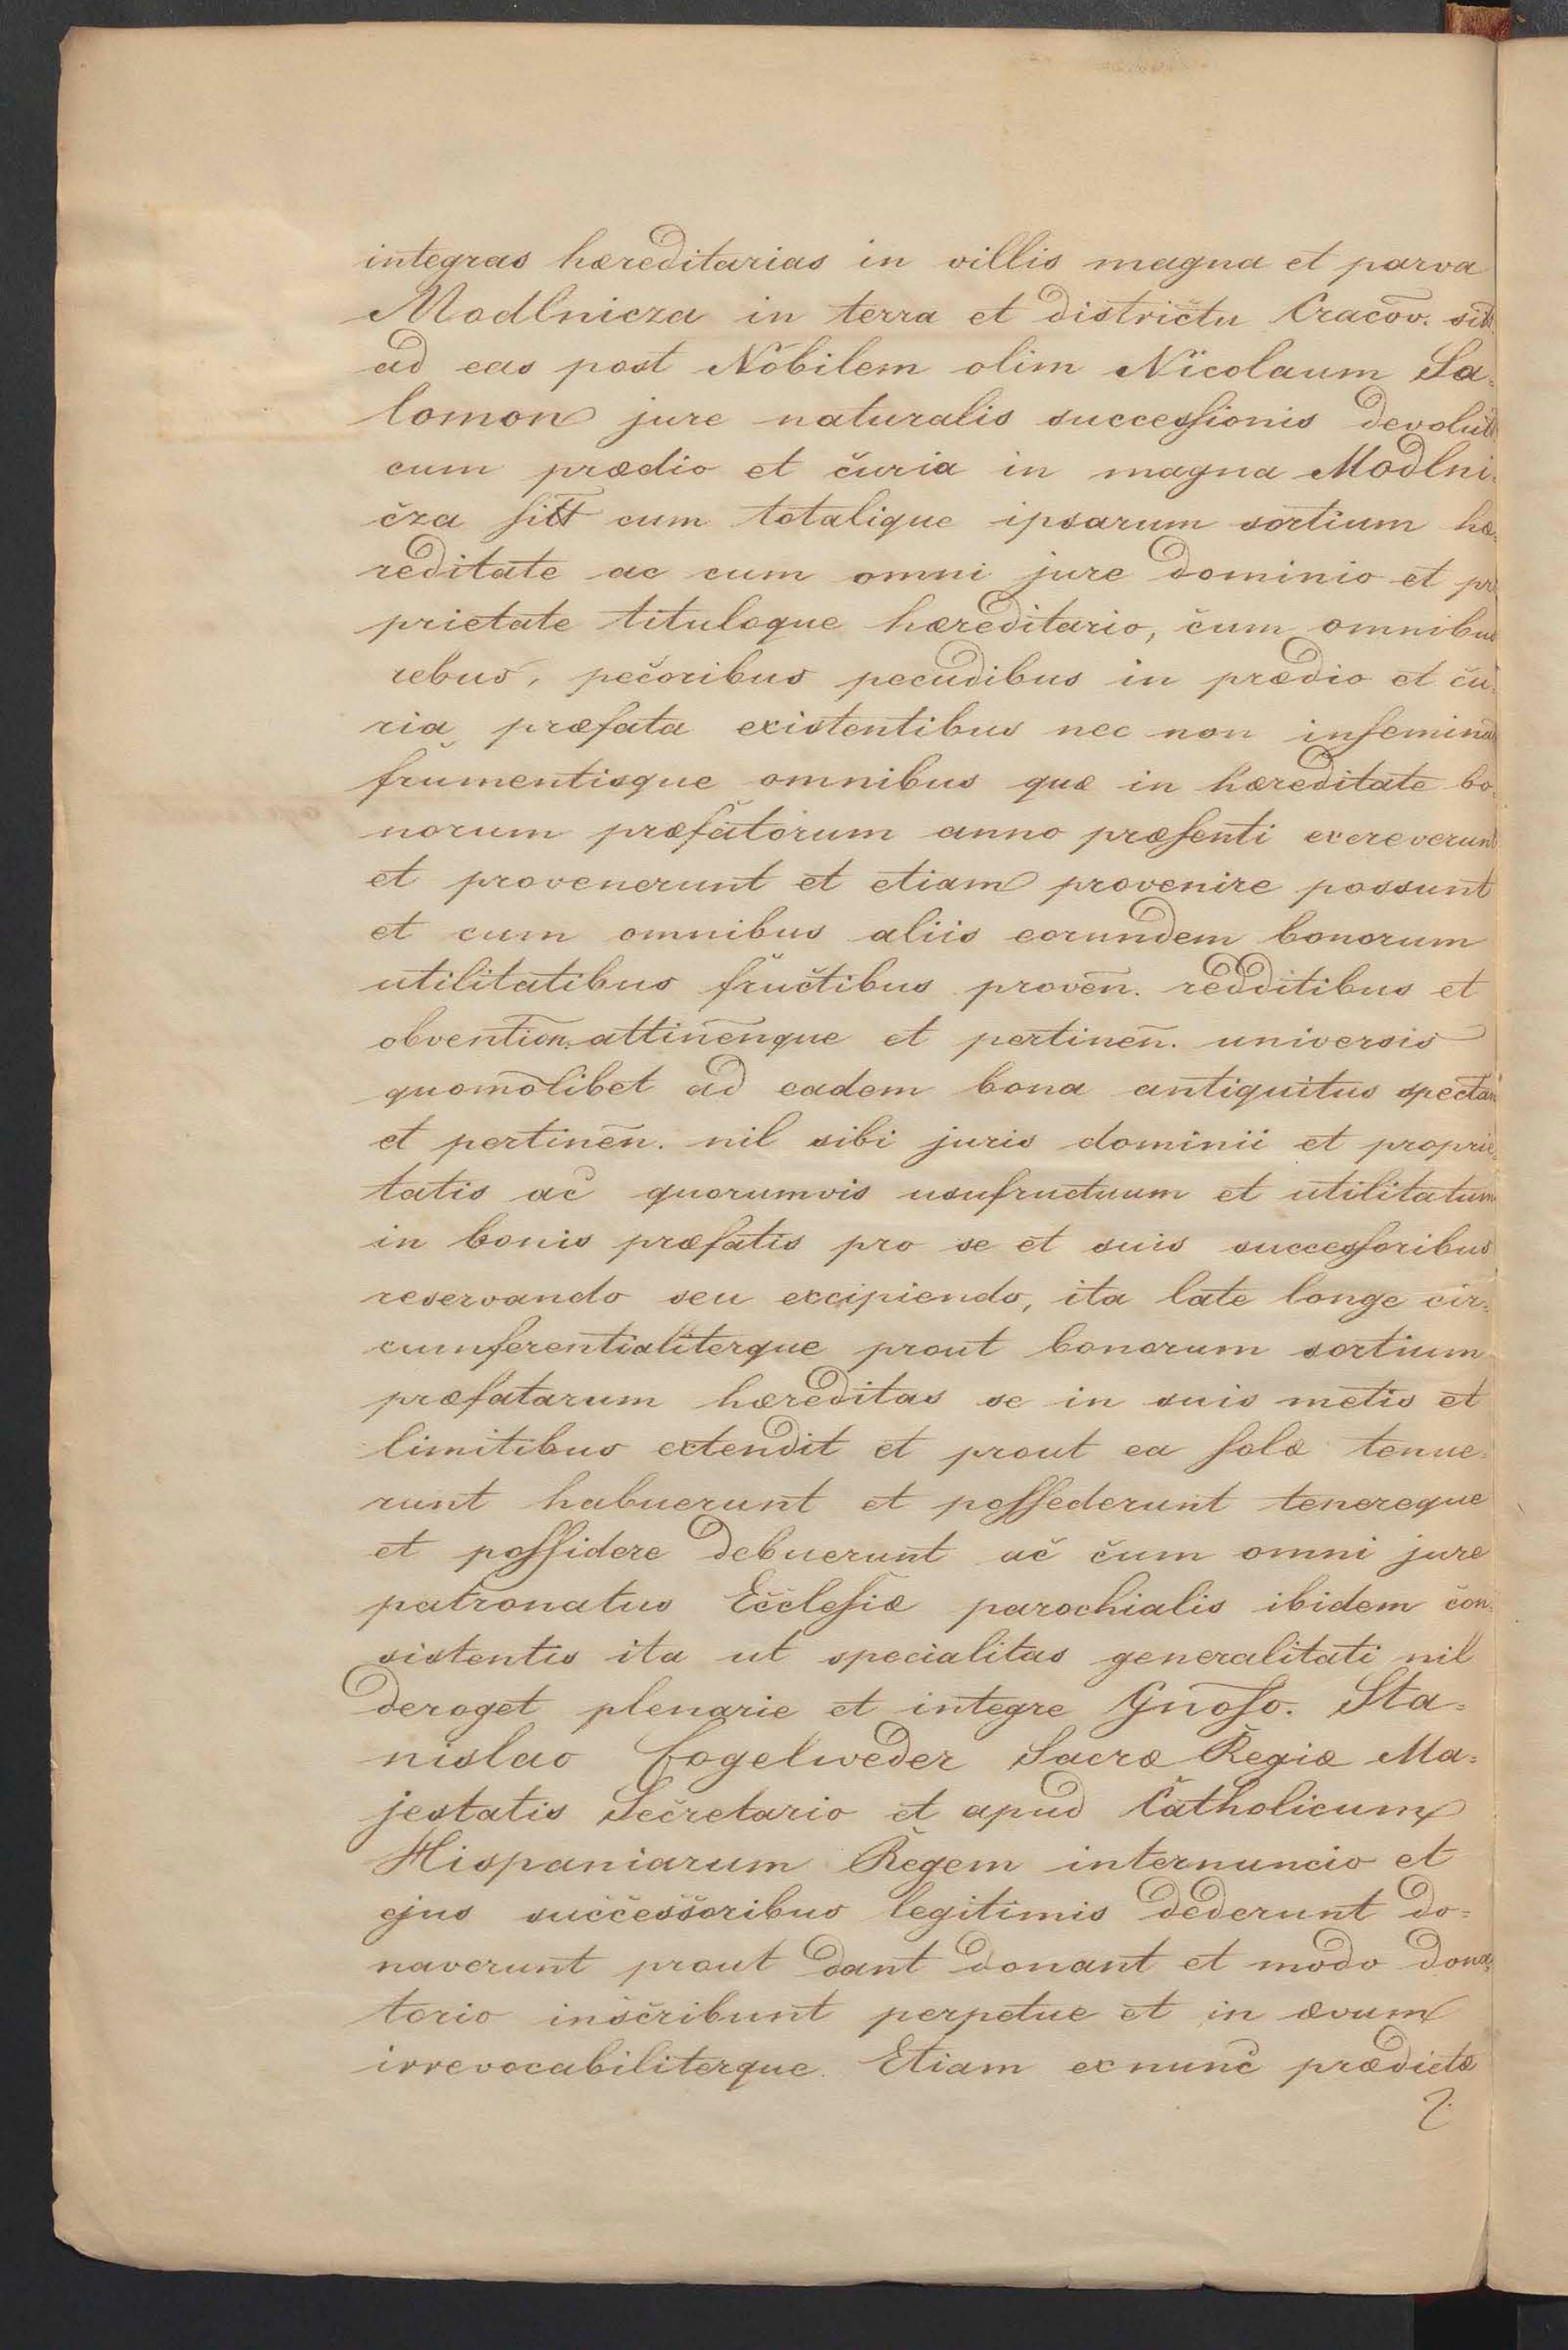 integras hæreditarias in villis magna et parva
Modlnicza in terra et districtu Cracov̄.
ad eas post Nobilem olim Nicolaum Sa=
lomon jure naturalis successionis
cum prædio et curia in magna Modlni=
cza sitt̄ cum totalique ipsarum sortium hæ=
reditate ac cum omni jure dominio et pro
prietate tituloque hæreditario, cum omnibus
rebus, pecoribus pecudibus in prædio et cu=
ria præfata existentibus nec non
frumentisque omnibus quæ in hæreditate bo=
norum præfatorum anno præsenti excreverunt
et provenerunt et etiam provenire possunt
et cum omnibus aliis eorundem bonorum
utilitatibus fructibus proven̄. redditibus et
obvention̄. attinen̄que et pertinen̄. universis
quomōlibet ad eadem bona antiquitus spectan̄
et pertinen̄. nil sibi juris dominii et proprie=
tatis ac quorumvis usufructuum et utilitatum
in bonis præfatis pro se et suis successoribus
reservando seu excipiendo, ita late longe cir=
cumferentialiterque prout bonorum sortium
præfatarum hæreditas se in suis metis et
limitibus extendit et prout ea solæ tenue=
runt habuerunt et possederunt tenereque
et possidere debuerunt ac cum omni jure
patronatus Ecclesiæ parochialis ibidem con=
sistentis ita ut specialitas generalitati nil
deroget plenarie et integre Gnōso. Sta=
nislao Fogelweder Sacræ Regiæ Ma=
jestatis Secretario et apud Catholicum
Hispaniarum Regem internuncio et
ejus successoribus legitimis dederunt do=
naverunt prout dant donant et modo dona=
torio inscribunt perpetue et in ævum
irrevocabiliterque. Etiam exnunc prædictæ